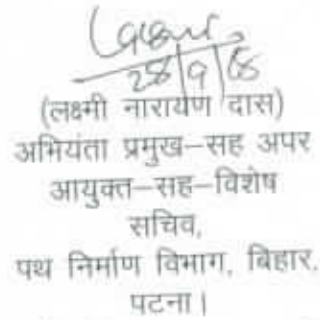 28/9/
(लक्ष्मी नारायण दास)
अभियंता प्रमुख–सह अपर
आयुक्त–सह–विशेष
सचिव,
पथ निर्माण विभाग, बिहार,
पटना।